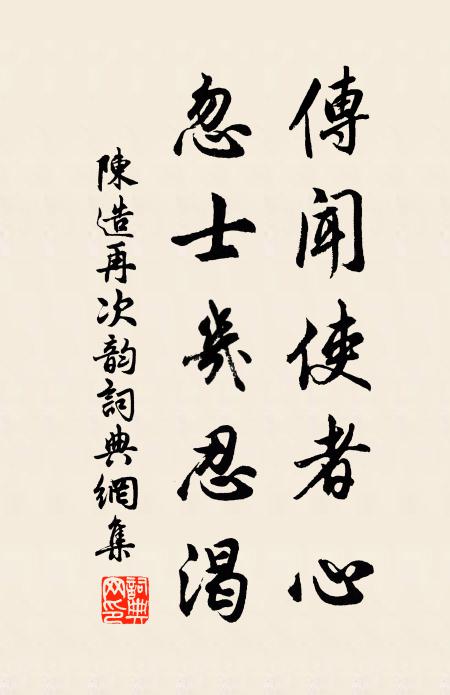 傳聞使者心
忽士幾忍渴
陳造再次韵詞典網集
詞典网印